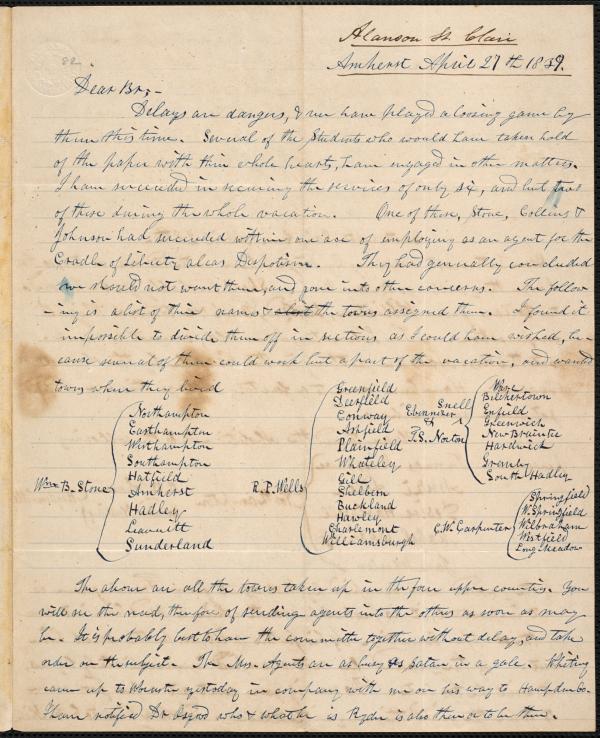 82
Alanson St. Clair
Amherst April 27th 1839.
Dear Br,-
Delays are dangers, & we have played a loosing game by
them this time. Several of the Students who would have taken hold
of the paper with their whole hearts, have engaged in other matters.
I have succeeded in securing the services of only six, and but two
of these during the whole vacation. One of these, Stone, Collins &
Johnson had succeeded within an ace of employing as an agent for the
Cradle of Liberty alias Despotism. They had generally concluded
we should not want them, and gone into other concerns. The follow
-ing is a list of their names & the towns assigned them. I found it
impossible to divide them off in sections as I could have wished, be
cause several of them could work but a part of the vacation, and wanted
towns where they lived
Wm B. Stone
Northampton
Easthampton
Westhampton
Southampton
Hatfield
Amherst
Hadley
Leavritt
Sunderland
R. P. Wells
Greenfield
Deerfield
Conway
Ashfield
Plainfield
Whateley
Gill
Shelburn
Buckland
Hawley
Charlemont
Williamsburgh
Ebenezer Snell
&
T. S. Norton
Ware
Belchertown
Enfield
Greenwich
New Braintee
Hardwick
Granby
South Hadley
C. W. Carpenter
Springfield
W. Springfield
Wilbraham
Westfield
Long Meadow
The above are all the towns taken up in the four upper counties. You
will see the need, therefore of sending agents into the others as soon as may
be. It is probably best to have the committe together without delay, and take
order on the subject. The Mss. Agents are as busy as Satan in a gale. Whiting
came up to Worcester yestoday in company with me on his way to Hampden Co.
I have notified Dr Osgood who & what he is Ryder is also there or to be there.